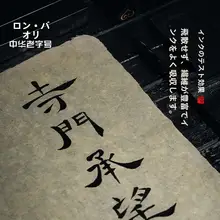 ロン・バ
オリ
中华老字号
インクのテスト効果
飛散せず 繊維が豊富でイ
ンクをよく吸収します。
寺
門
承
望